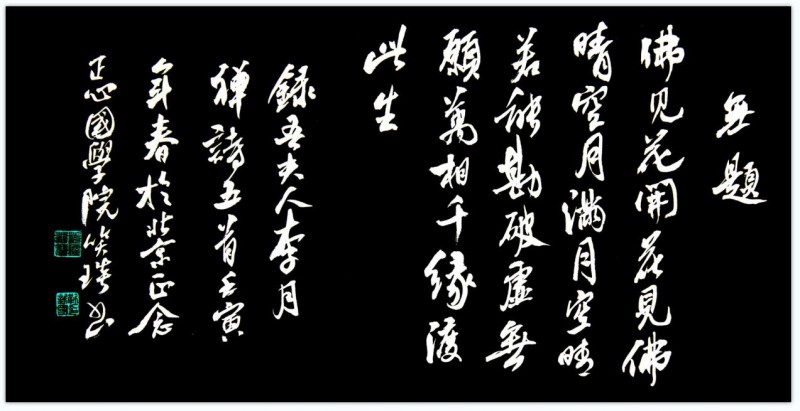 無題
佛见花開花見佛
晴空月滿月空晴
若能勘破虛無
願萬相千緣渡
此生
錄吾夫人李月
禪詩五首壬寅
年春於北京正念
正心國學院笑书